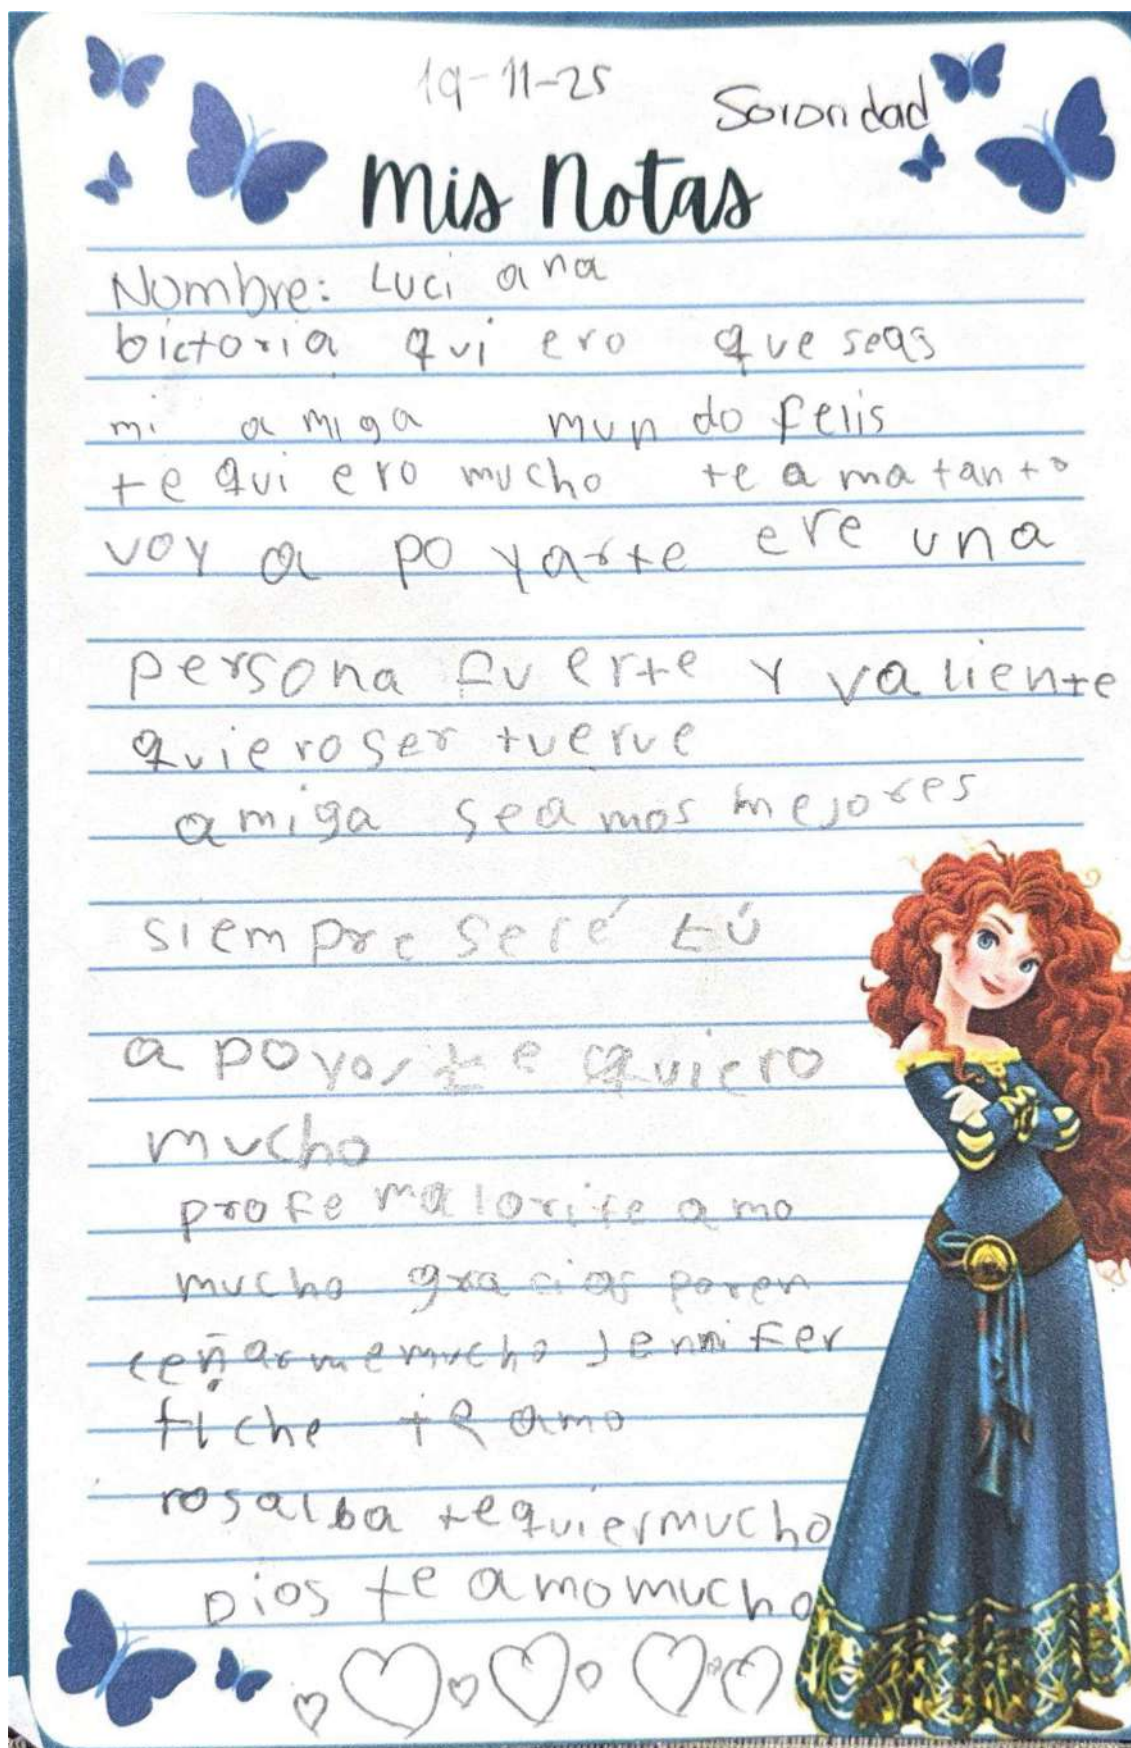 19-11-25
Sorondad
Mis Notas
Nombre: Luci ana
bictoria qui ero que seas
mi a miga mun do felis
te qui ero mucho te a ma tanto
voy a po yarte ere una
persona fu erte y va liente
quieroser tuerve
amiga sea mos mejores
siem pre seré tú
a poyar te quiero
mucho
profe ma lori te a mo
mucho gra cias por en
ceñarmemucho Jennifer
fiche te amo
rosalba tequiermucho
Dios te amomucho